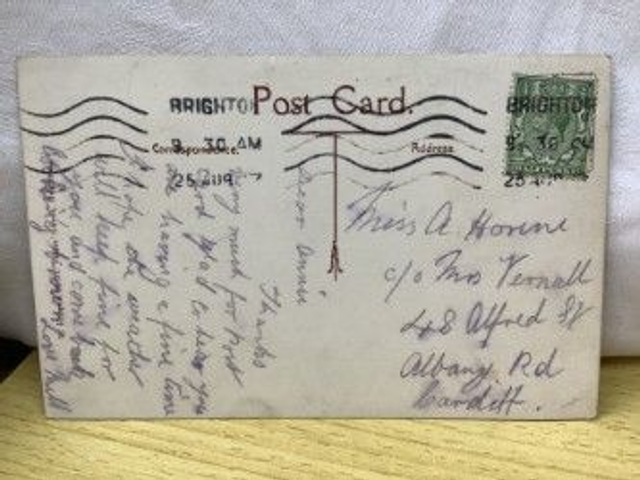 BRIGHTON
9. 30 AM
25 AUG
Post Card.
Correspondence.
Address
BRIGHTON
9. 30 AM
25
Dear Annie
Thanks
very much for Post
card glad to hear you
are having a fine time
I hope the weather
will keep fine for
you and come back
Love Nell
Miss A Horine
c/o Mrs Vernall
48 Alfred St
Albany Rd
Cardiff.